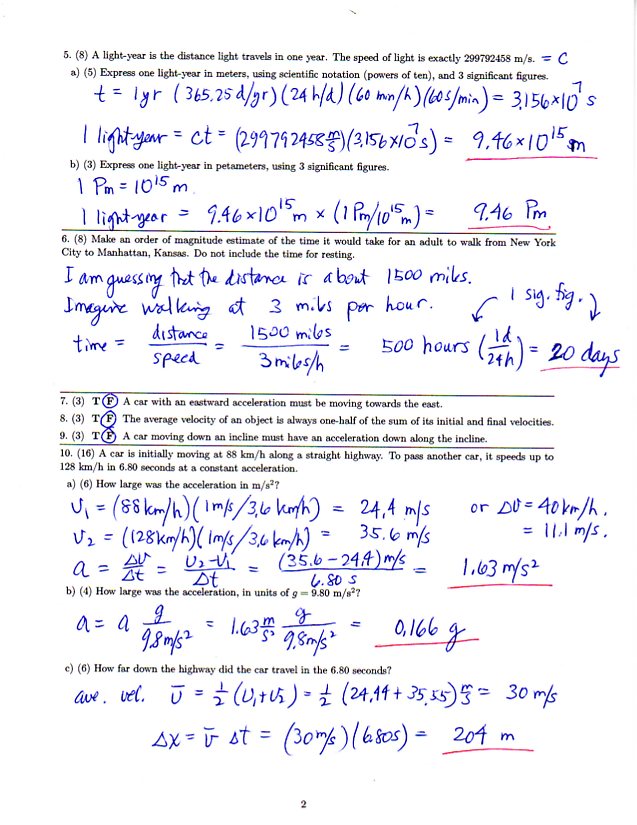 5. (8) A light-year is the distance light travels in one year. The speed of light is exactly 299792458 m/s. = C
a) (5) Express one light-year in meters, using scientific notation (powers of ten), and 3 significant figures.
t = 1yr (365.25 d/yr)(24 h/d)(60 min/h)(60s/min) = 3.156×10⁷ s
1 light-year = ct = (299792458 m/s)(3.156×10⁷s) = 9.46×10¹⁵ m
b) (3) Express one light-year in petameters, using 3 significant figures.
1 Pm = 10¹⁵ m
1 light-year = 9.46×10¹⁵ m × (1 Pm/10¹⁵m) = 9.46 Pm
6. (8) Make an order of magnitude estimate of the time it would take for an adult to walk from New York
City to Manhattan, Kansas. Do not include the time for resting.
I am guessing that the distance is about 1500 miles.
Imagine walking at 3 miles per hour. 1 sig. fig.
time = distance/speed = 1500 miles/3 miles/h = 500 hours (1d/24h) = 20 days
7. (3) T F A car with an eastward acceleration must be moving towards the east.
8. (3) T F The average velocity of an object is always one-half of the sum of its initial and final velocities.
9. (3) T F A car moving down an incline must have an acceleration down along the incline.
10. (16) A car is initially moving at 88 km/h along a straight highway. To pass another car, it speeds up to
128 km/h in 6.80 seconds at a constant acceleration.
a) (6) How large was the acceleration in m/s²?
v₁ = (88 km/h)(1m/s/3.6 km/h) = 24.4 m/s or Δv = 40 km/h.
v₂ = (128km/h)(1m/s/3.6 km/h) = 35.6 m/s = 11.1 m/s.
a = Δv/Δt = v₂-v₁/Δt = (35.6 - 24.4) m/s/6.80 s = 1.63 m/s²
b) (4) How large was the acceleration, in units of g = 9.80 m/s²?
a = a g/9.8m/s² = 1.63 m/s² g/9.8m/s² = 0.166 g
c) (6) How far down the highway did the car travel in the 6.80 seconds?
ave. vel. v̄ = ½ (v₁+v₂) = ½ (24.44 + 35.55) m/s = 30 m/s
Δx = v̄ Δt = (30 m/s)(6.80s) = 204 m
2